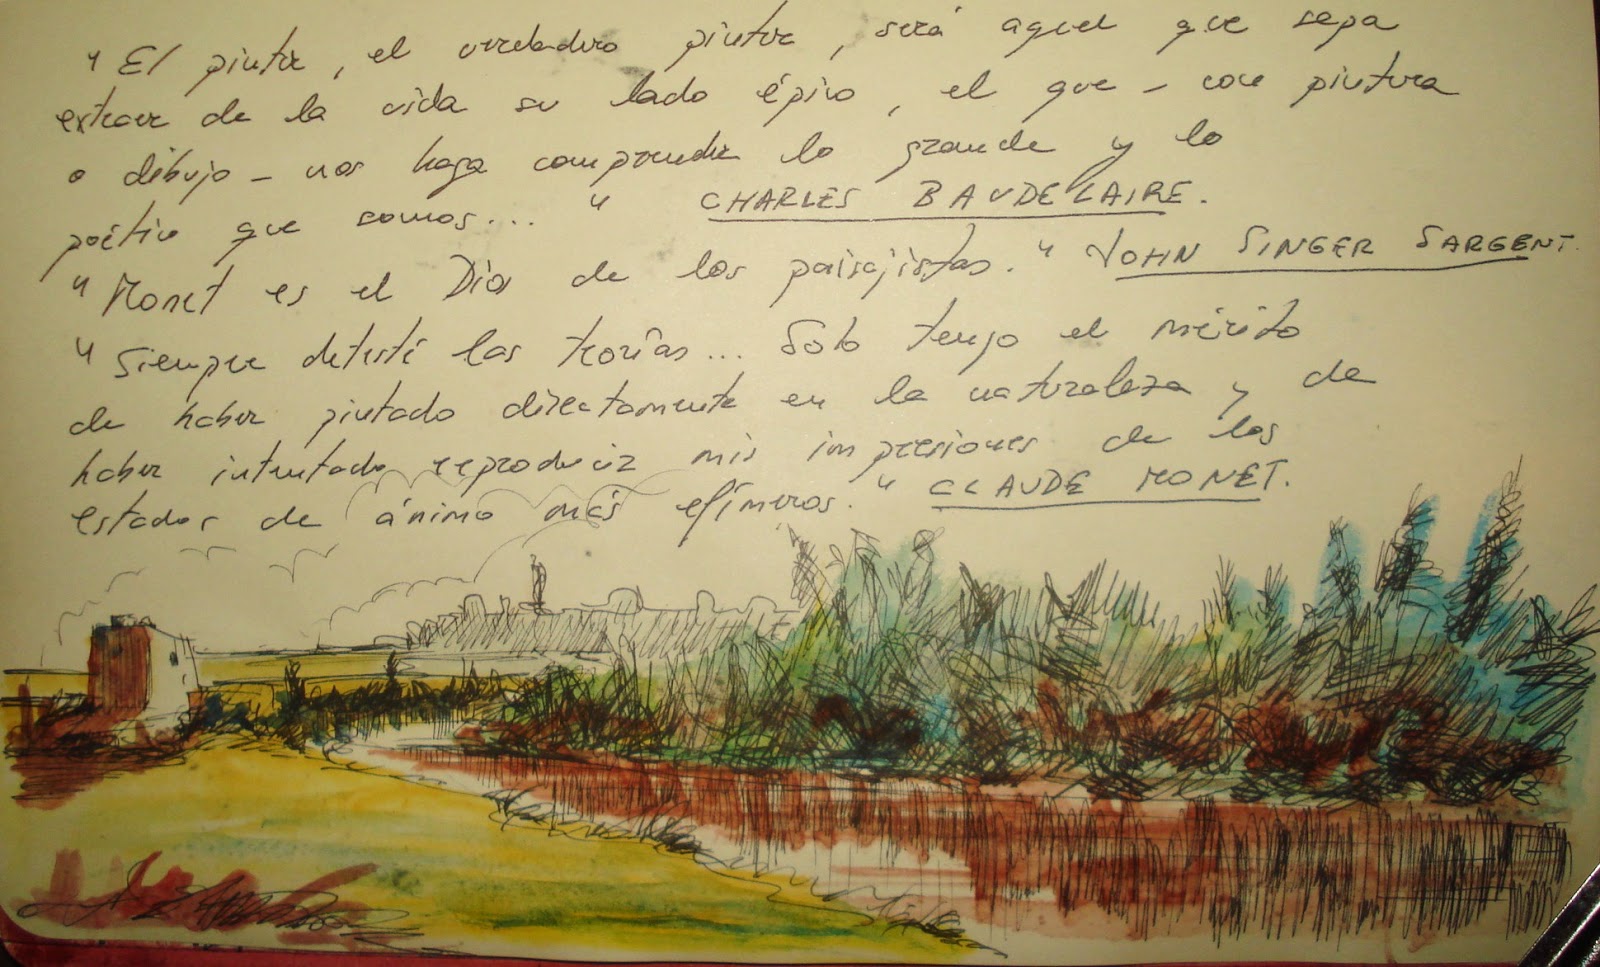 " El pintor, el verdadero pintor, será aquel que sepa
extraer de la vida su lado épico, el que - con pintura
o dibujo - nos haga comprender lo grande y lo
poético que somos... " CHARLES BAUDELAIRE.
" Monet es el Dios de los paisajistas. " JOHN SINGER SARGENT.
" Siempre detesté las teorías... Solo tengo el mérito
de haber pintado directamente en la naturaleza y de
haber intentado reproducir mis impresiones de los
estados de ánimo más efímeros. " CLAUDE MONET.